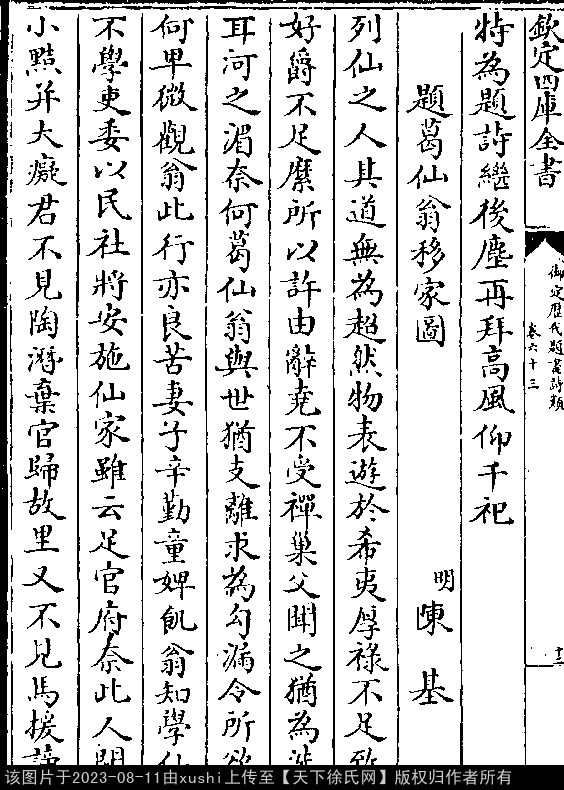 欽定四庫全書
御定歷代題畫詩類
卷六十三
十二
特為題詩繼後塵再拜高風仰千祀
題葛仙翁移家圖
明
陳基
列仙之人其道無為超然物表遊於希夷厚祿不足致
好爵不足縻所以許由辭堯不受禪巢父聞之猶為
耳河之湄奈何葛仙翁與世猶支離求為勾漏令所欲
何卑微觀翁此行亦良苦妻子辛勤童婢飢翁知學仙
不學吏委以民社將安施仙家雖云足官府奈此人間
小黠并大癡君不見陶潛棄官歸故里又不見馬援
该图片于2023-08-11由xushi上传至【天下徐氏网】版权归作者所有